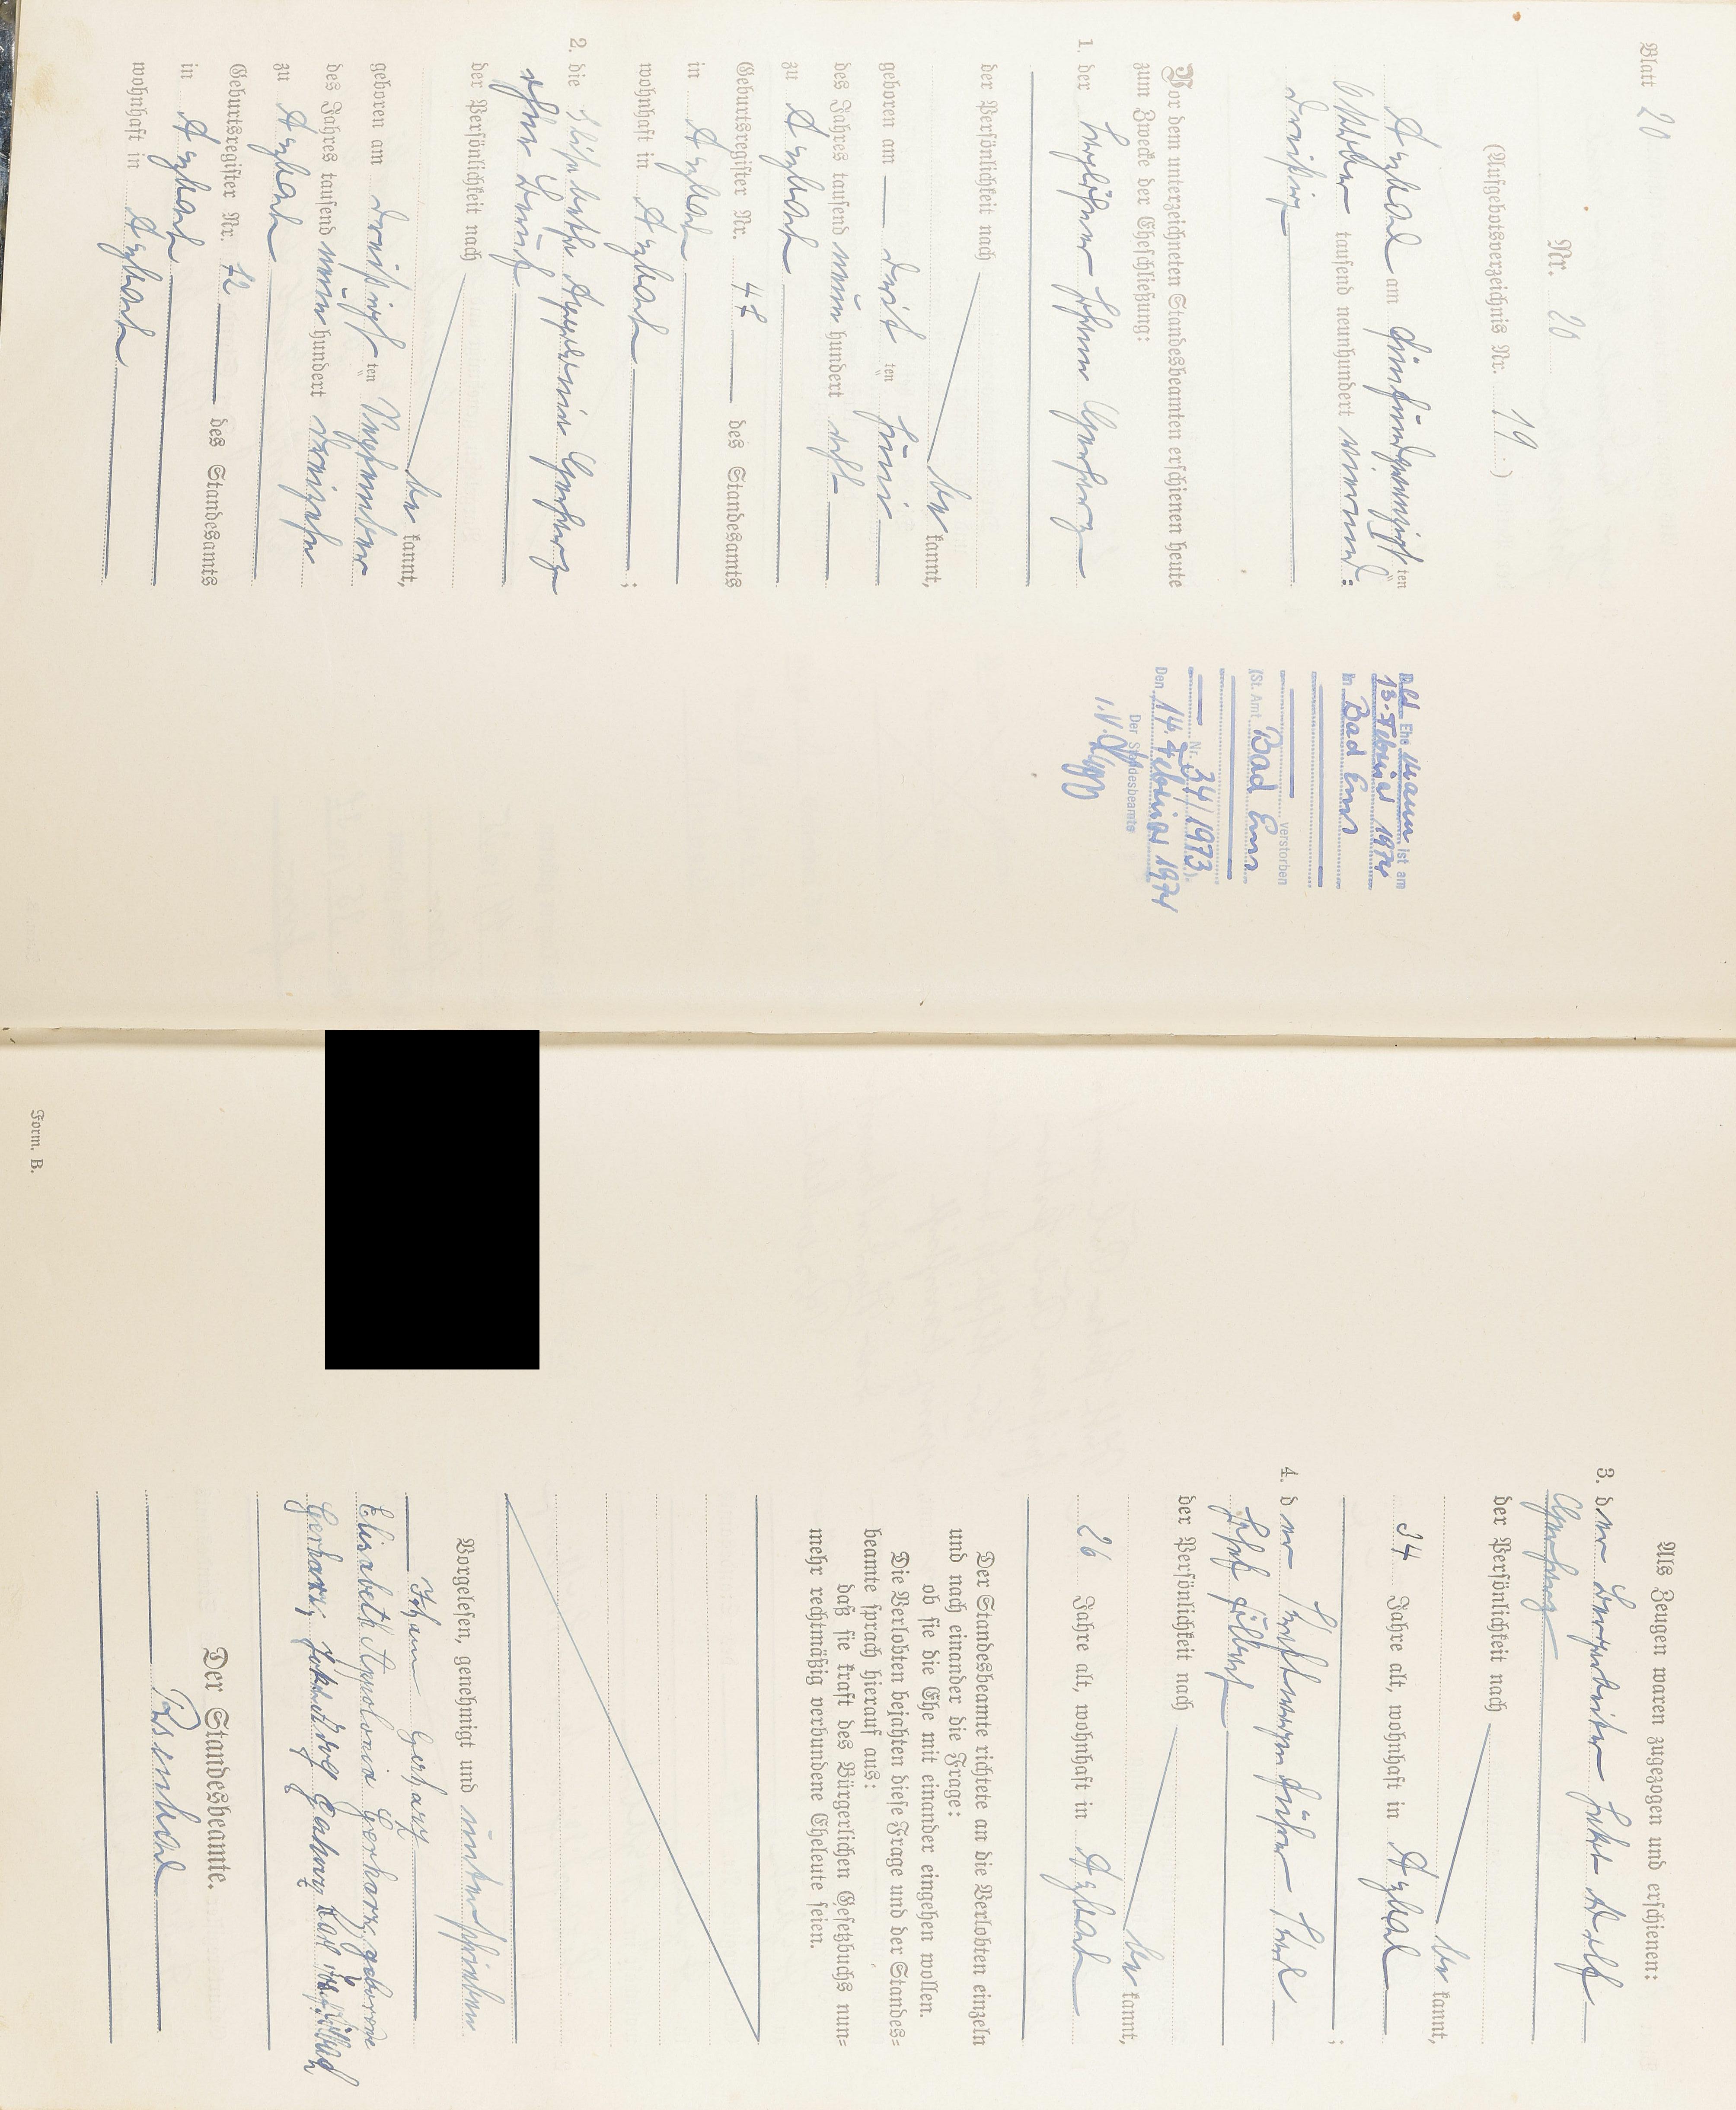 Blatt 20
Nr. 20
(Aufgebotsverzeichnis Nr. 19)
Arzbach am fünfundzwanzigsten
Oktober tausend neunhundert neunund:
dreißig
Vor dem unterzeichneten Standesbeamten erschienen heute
zum Zwecke der Eheschließung:
1. der Johann Gerharz
der Persönlichkeit nach
be kannt,
geboren am ten Juni
des Jahres tausend neun hundert elf
zu Arzbach
Geburtsregister Nr. 47 des Standesamts
in Arzbach
wohnhaft in Arzbach
;
2. die Elisabetha Appolonia Gerharz
ohne Beruf
der Persönlichkeit nach
be kannt,
geboren am dreißigsten November
des Jahres tausend neun hundert dreizehn
zu Arzbach
Geburtsregister Nr. 72 des Standesamts
in Arzbach
wohnhaft in Arzbach
Ehemann ist am
13. Februar 1974
in Bad Ems
verstorben
(St. Amt Bad Ems
Nr. 34/1973).
Den 14. Februar 1974
Der Standesbeamte
I.V.
Als Zeugen waren zugezogen und erschienen:
3. der Adolf
Gerharz
der Persönlichkeit nach
be kannt,
34 Jahre alt, wohnhaft in Arzbach
;
4. der Kraftwagenführer Karl
Josef
der Persönlichkeit nach
be kannt,
26 Jahre alt, wohnhaft in Arzbach
Der Standesbeamte richtete an die Verlobten einzeln
und nach einander die Frage:
ob sie die Ehe mit einander eingehen wollen.
Die Verlobten bejahten diese Frage und der Standes=
beamte sprach hierauf aus:
daß sie kraft des Bürgerlichen Gesetzbuchs nun=
mehr rechtmäßig verbundene Eheleute seien.
Vorgelesen, genehmigt und unterschrieben
Johann Gerharz
Elisabeth Appolonia Gerharz, geborene
Gerharz, Adolf Gerharz Karl Jos.
Der Standesbeamte.
Form. B.